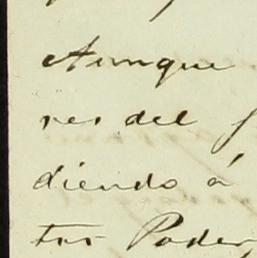 Aunque
res del
diendo á
tus Poder